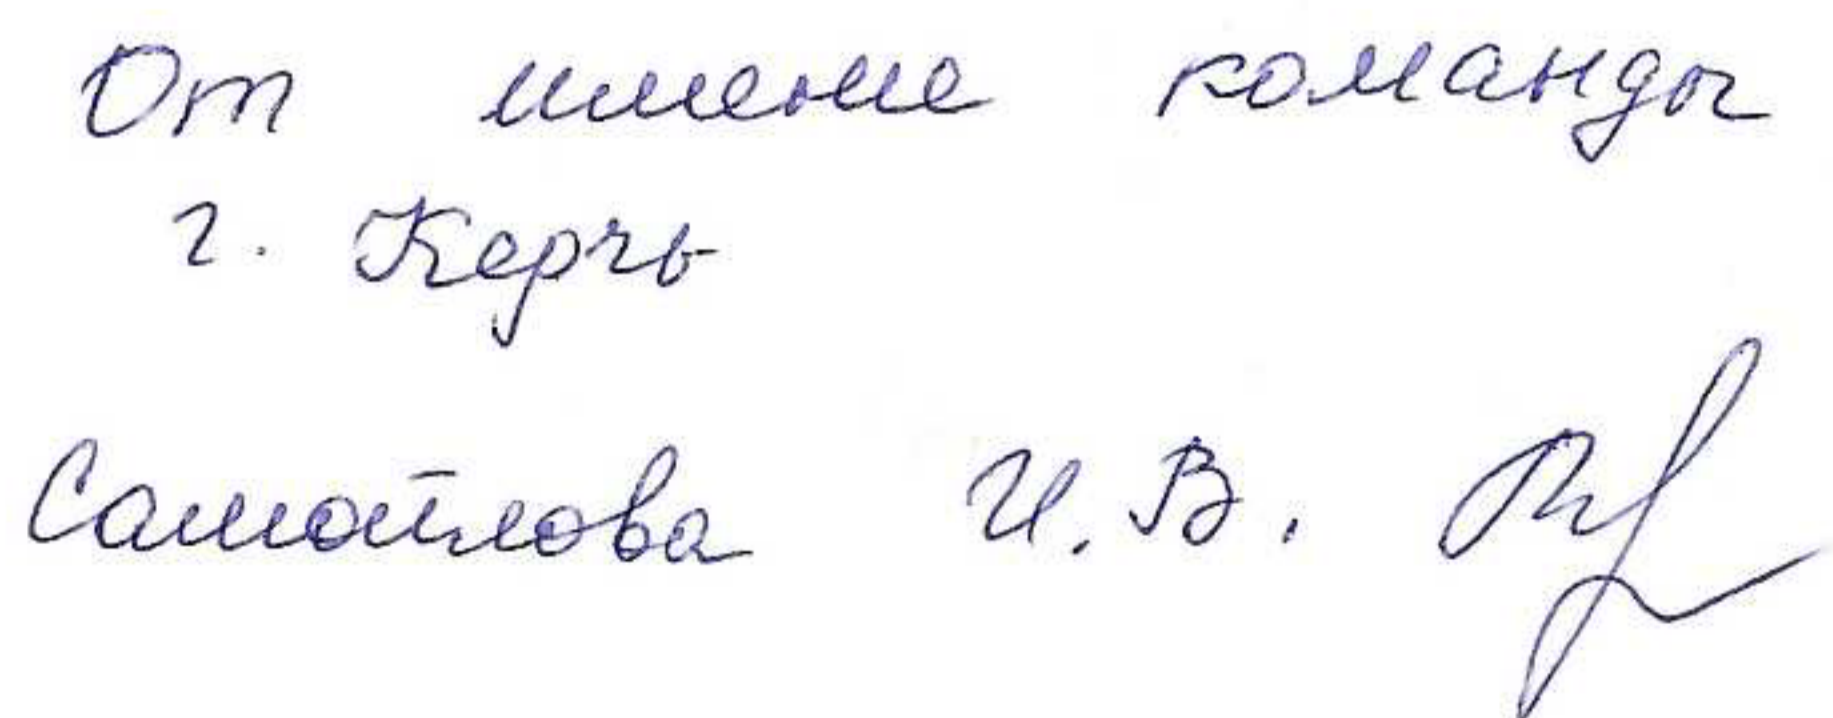 От имене команды
г. Керчь
Самойлова И.В.